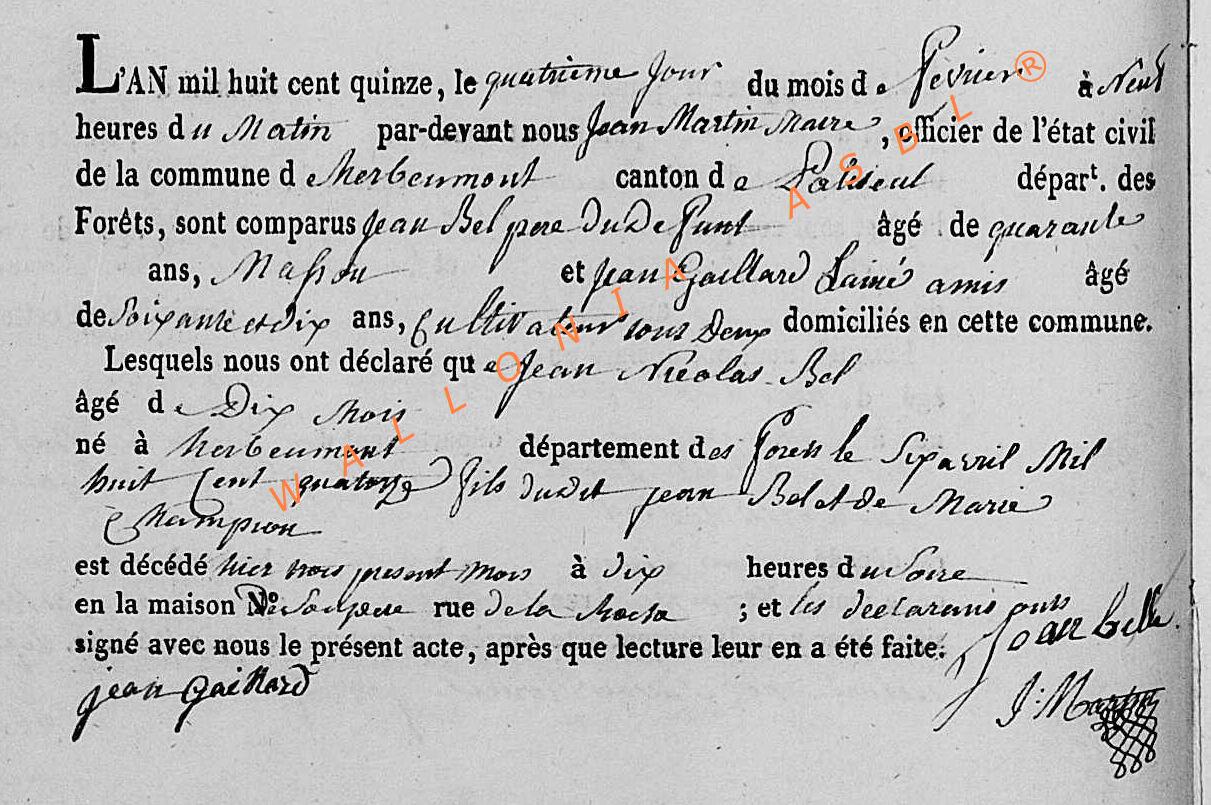 L'AN mil huit cent quinze, le quatrieme Jour du mois de Février à Neuf
heures du Matin par-devant nous Jean Martin Maire, officier de l'état civil
de la commune de Herbeumont canton de Paliseul départ. des
Forêts, sont comparus Jean Bel pere du Defunt âgé de quarante
ans, Masson et Jean Gaillard Lainé amis âgé
de Soixante et dix ans, Cultivateur tous Deux domiciliés en cette commune.
Lesquels nous ont déclaré que Jean Nicolas Bel
âgé de Dix Mois
né à herbeumont département des Forets le Six avril Mil
huit Cent quatorze fils dudit jean Bel et de Marie
Champion
est décédé hier trois present Mois à dix heures du Soire
en la maison No. Son pere rue de la Roche ; et les declarants ont
signé avec nous le présent acte, après que lecture leur en a été faite. Joan belle
jean Gaillard J: Martin
WALLONIA ASBL ®